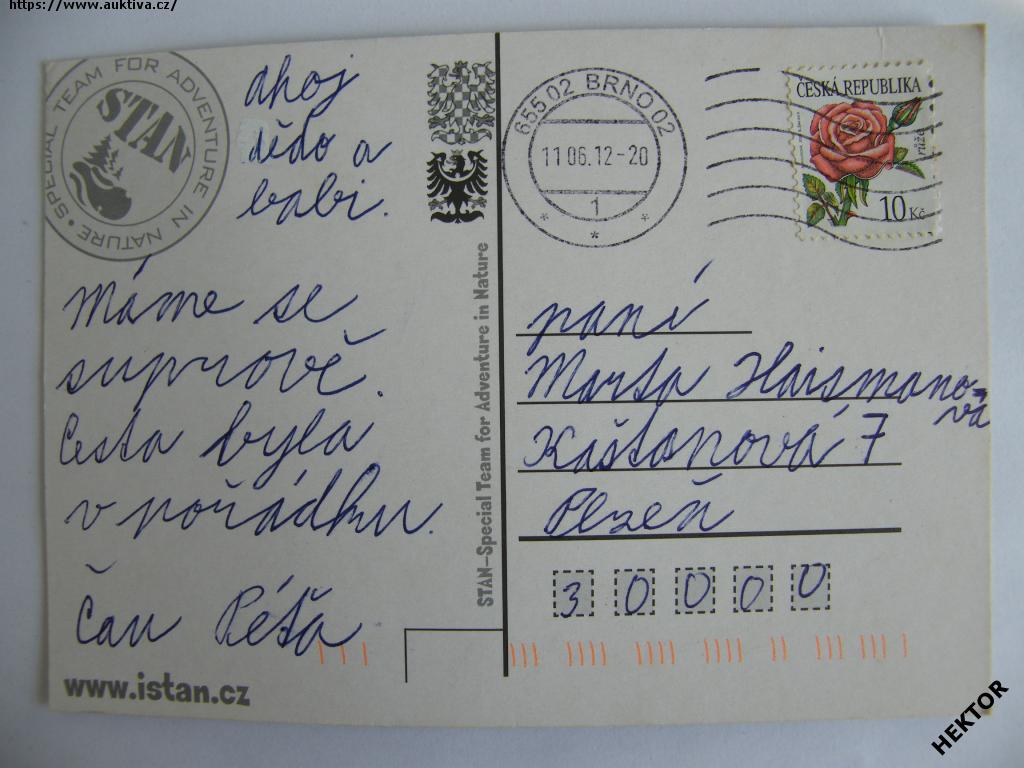 https://www.auktiva.cz/
SPECIAL TEAM FOR ADVENTURE IN NATURE
STAN
ahoj
dědo a
babi.
Máme se
suprově.
Cesta byla
v pořádku.
Čau Péťa
www.istan.cz
STAN–Special Team for Adventure in Nature
655 02 BRNO 02
11 06.12-20
1
ČESKÁ REPUBLIKA
růže
10 Kč
paní
Marta Haismano=
vá
Kaštanová 7
Plzeň
3 0 0 0 0
HEKTOR